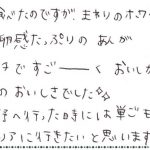 食べたのですが、まわりのホワ
卵感たっぷりのあんが
はですごーーーくおいし
のおいしさでした☆☆
へ行った時には単ごも
リアに行きたいと思います